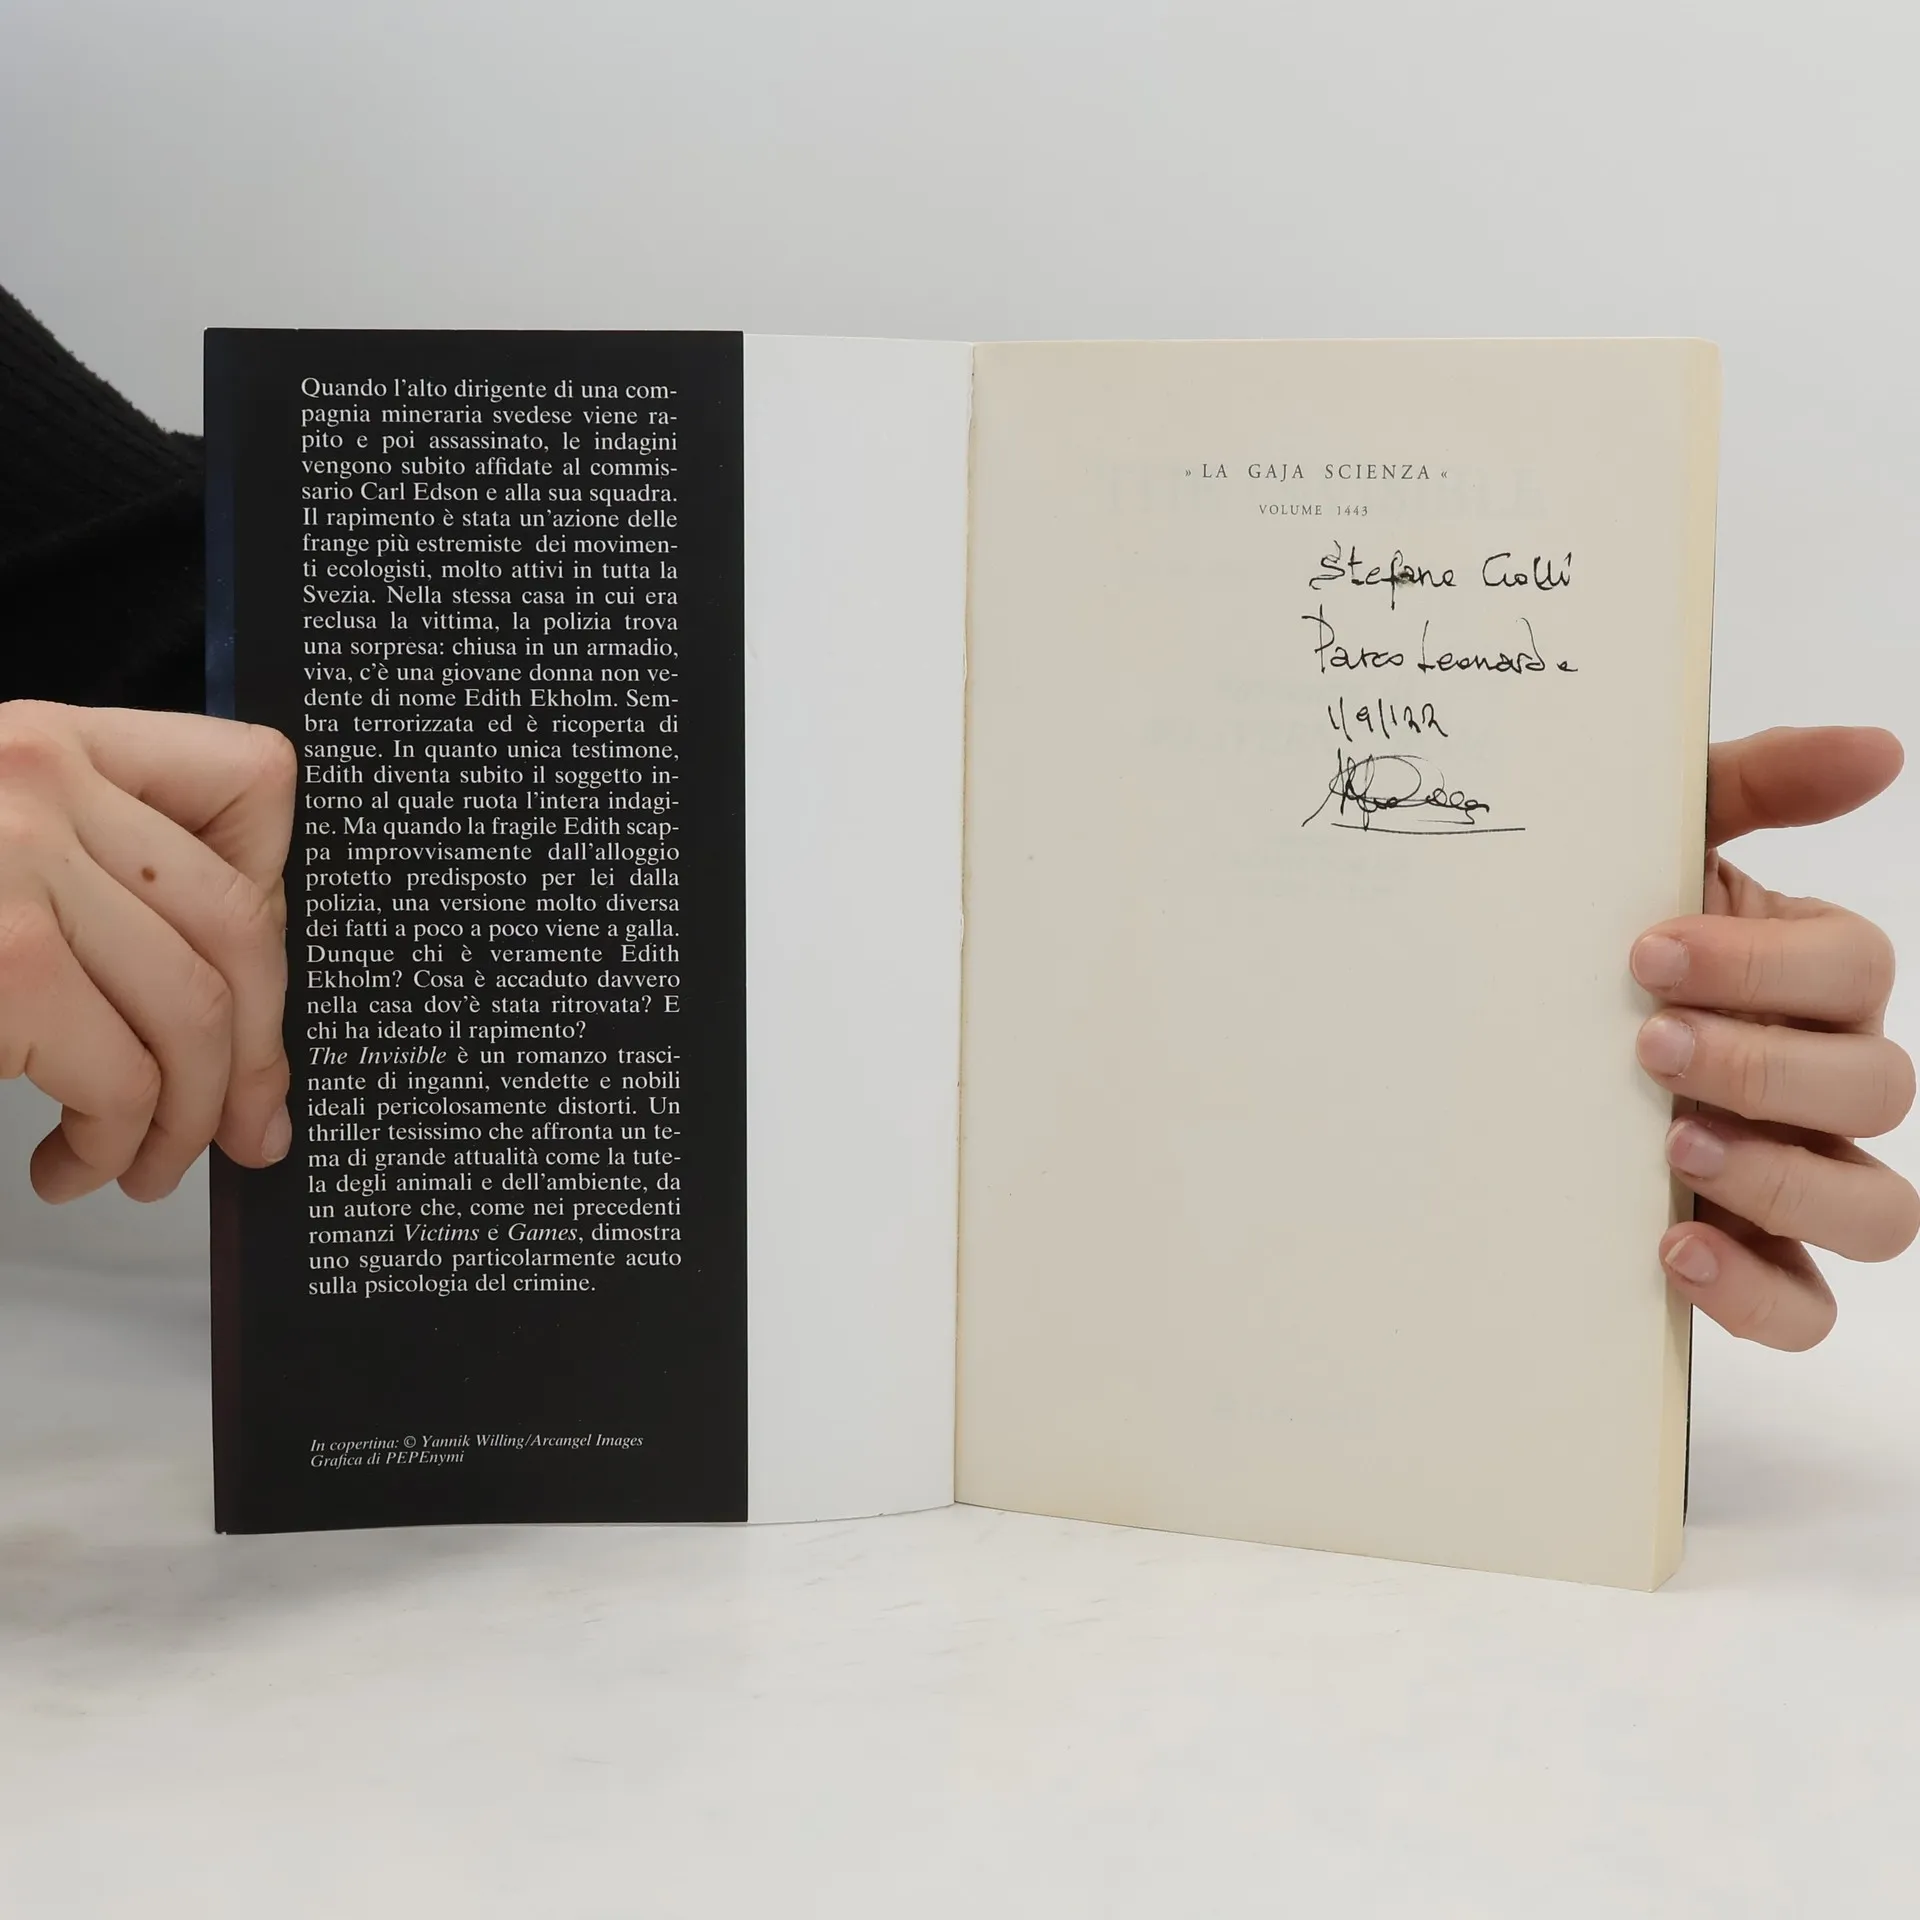 Quando l'alto dirigente di una com-
pagnia mineraria svedese viene ra-
pito e poi assassinato, le indagini
vengono subito affidate al commis-
sario Carl Edson e alla sua squadra.
Il rapimento è stata un'azione delle
frange più estremiste dei movimen-
ti ecologisti, molto attivi in tutta la
Svezia. Nella stessa casa in cui era
reclusa la vittima, la polizia trova
una sorpresa: chiusa in un armadio,
viva, c'è una giovane donna non ve-
dente di nome Edith Ekholm. Sem-
bra terrorizzata ed è ricoperta di
sangue. In quanto unica testimone,
Edith diventa subito il soggetto in-
torno al quale ruota l'intera indagi-
ne. Ma quando la fragile Edith scap-
pa improvvisamente dall'alloggio
protetto predisposto per lei dalla
polizia, una versione molto diversa
dei fatti a poco a poco viene a galla.
Dunque chi è veramente Edith
Ekholm? Cosa è accaduto davvero
nella casa dov'è stata ritrovata? E
chi ha ideato il rapimento?
The Invisible è un romanzo trasci-
nante di inganni, vendette e nobili
ideali pericolosamente distorti. Un
thriller tesissimo che affronta un te-
ma di grande attualità come la tute-
la degli animali e dell'ambiente, da
un autore che, come nei precedenti
romanzi Victims e Games, dimostra
uno sguardo particolarmente acuto
sulla psicologia del crimine.
In copertina: © Yannik Willing/Arcangel Images
Grafica di PEPEnymi
» LA GAJA SCIENZA «
VOLUME 1443
Stefano
Parco Leonardo